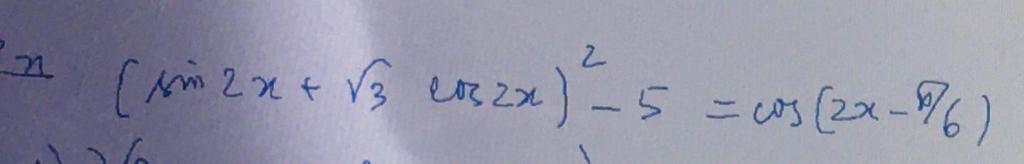 (sin 2x + √3 cos 2x)² - 5 = cos(2x - π/6)